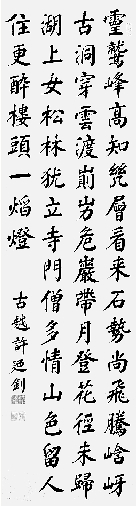 靈鷲峰高知幾層看來石勢尚飛騰峆岈
古洞穿雲渡崱屴危巖帶月登花徑未歸
湖上女松林猶立寺門僧多情山色留人
住更醉樓頭一焰燈
古越許廼釗